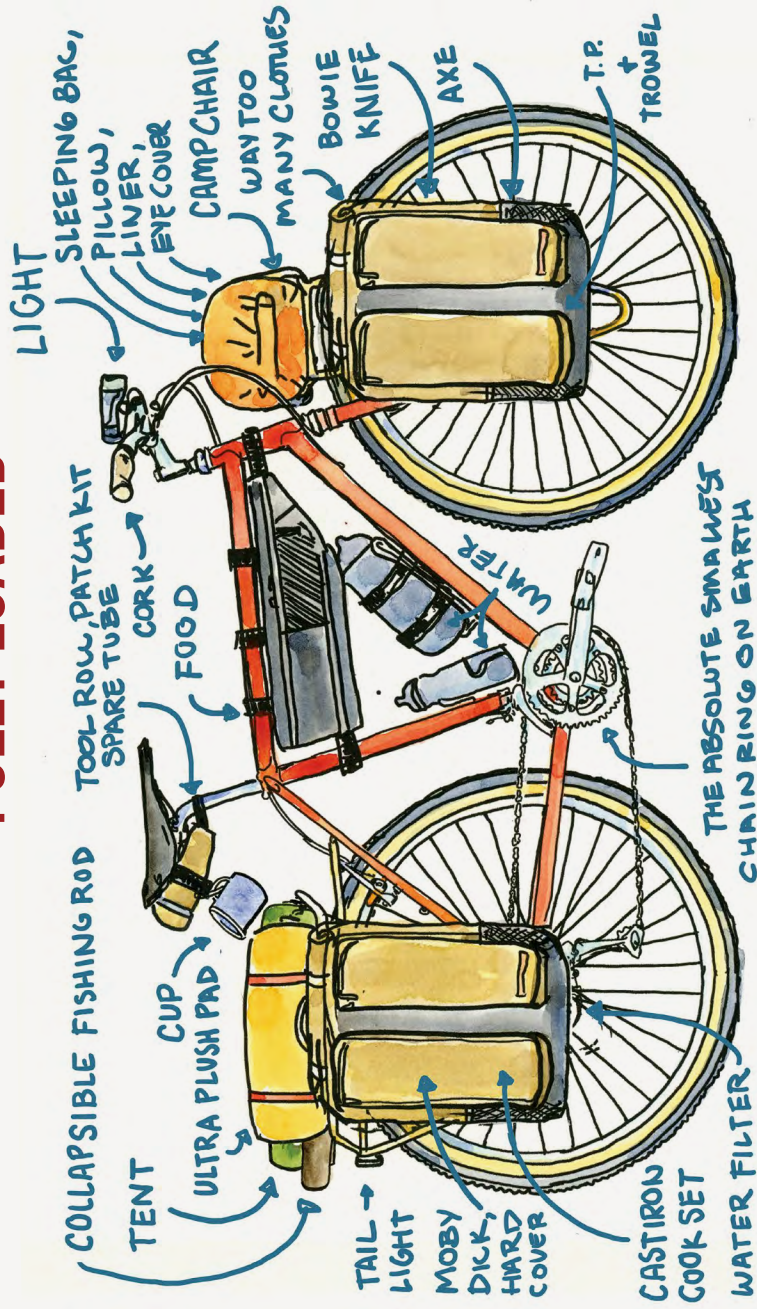 FULLY LOADED
LIGHT
SLEEPING BAG,
PILLOW,
LINER,
EYE COVER
CAMP CHAIR
WAY TOO
MANY CLOTHES
BOWIE
KNIFE
AXE
T.P.
+
TROWEL
TOOL ROLL, PATCH KIT
SPARE TUBE
CORK
FOOD
WATER
THE ABSOLUTE SMALLEST
CHAIN RING ON EARTH
COLLAPSIBLE FISHING ROD
TENT
CUP
ULTRA PLUSH PAD
TAIL
LIGHT
MOBY
DICK,
HARD
COVER
CAST IRON
COOK SET
WATER FILTER